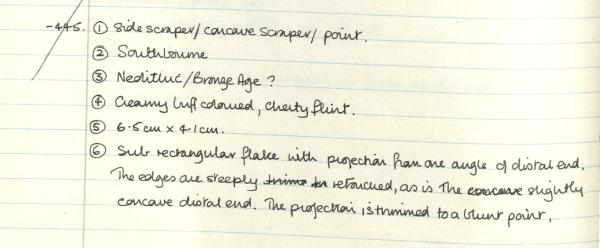 -445. ① Side scraper/ concave scraper/ point.
② Southbourne
③ Neolithic/Bronze Age ?
④ Creamy buff coloured, cherty flint.
⑤ 6.5cm x 4.1cm.
⑥ Sub rectangular flake with projection from one angle of distal end.
The edges are steeply retouched, as is the concave slightly
concave distal end. The projection is trimmed to a blunt point.